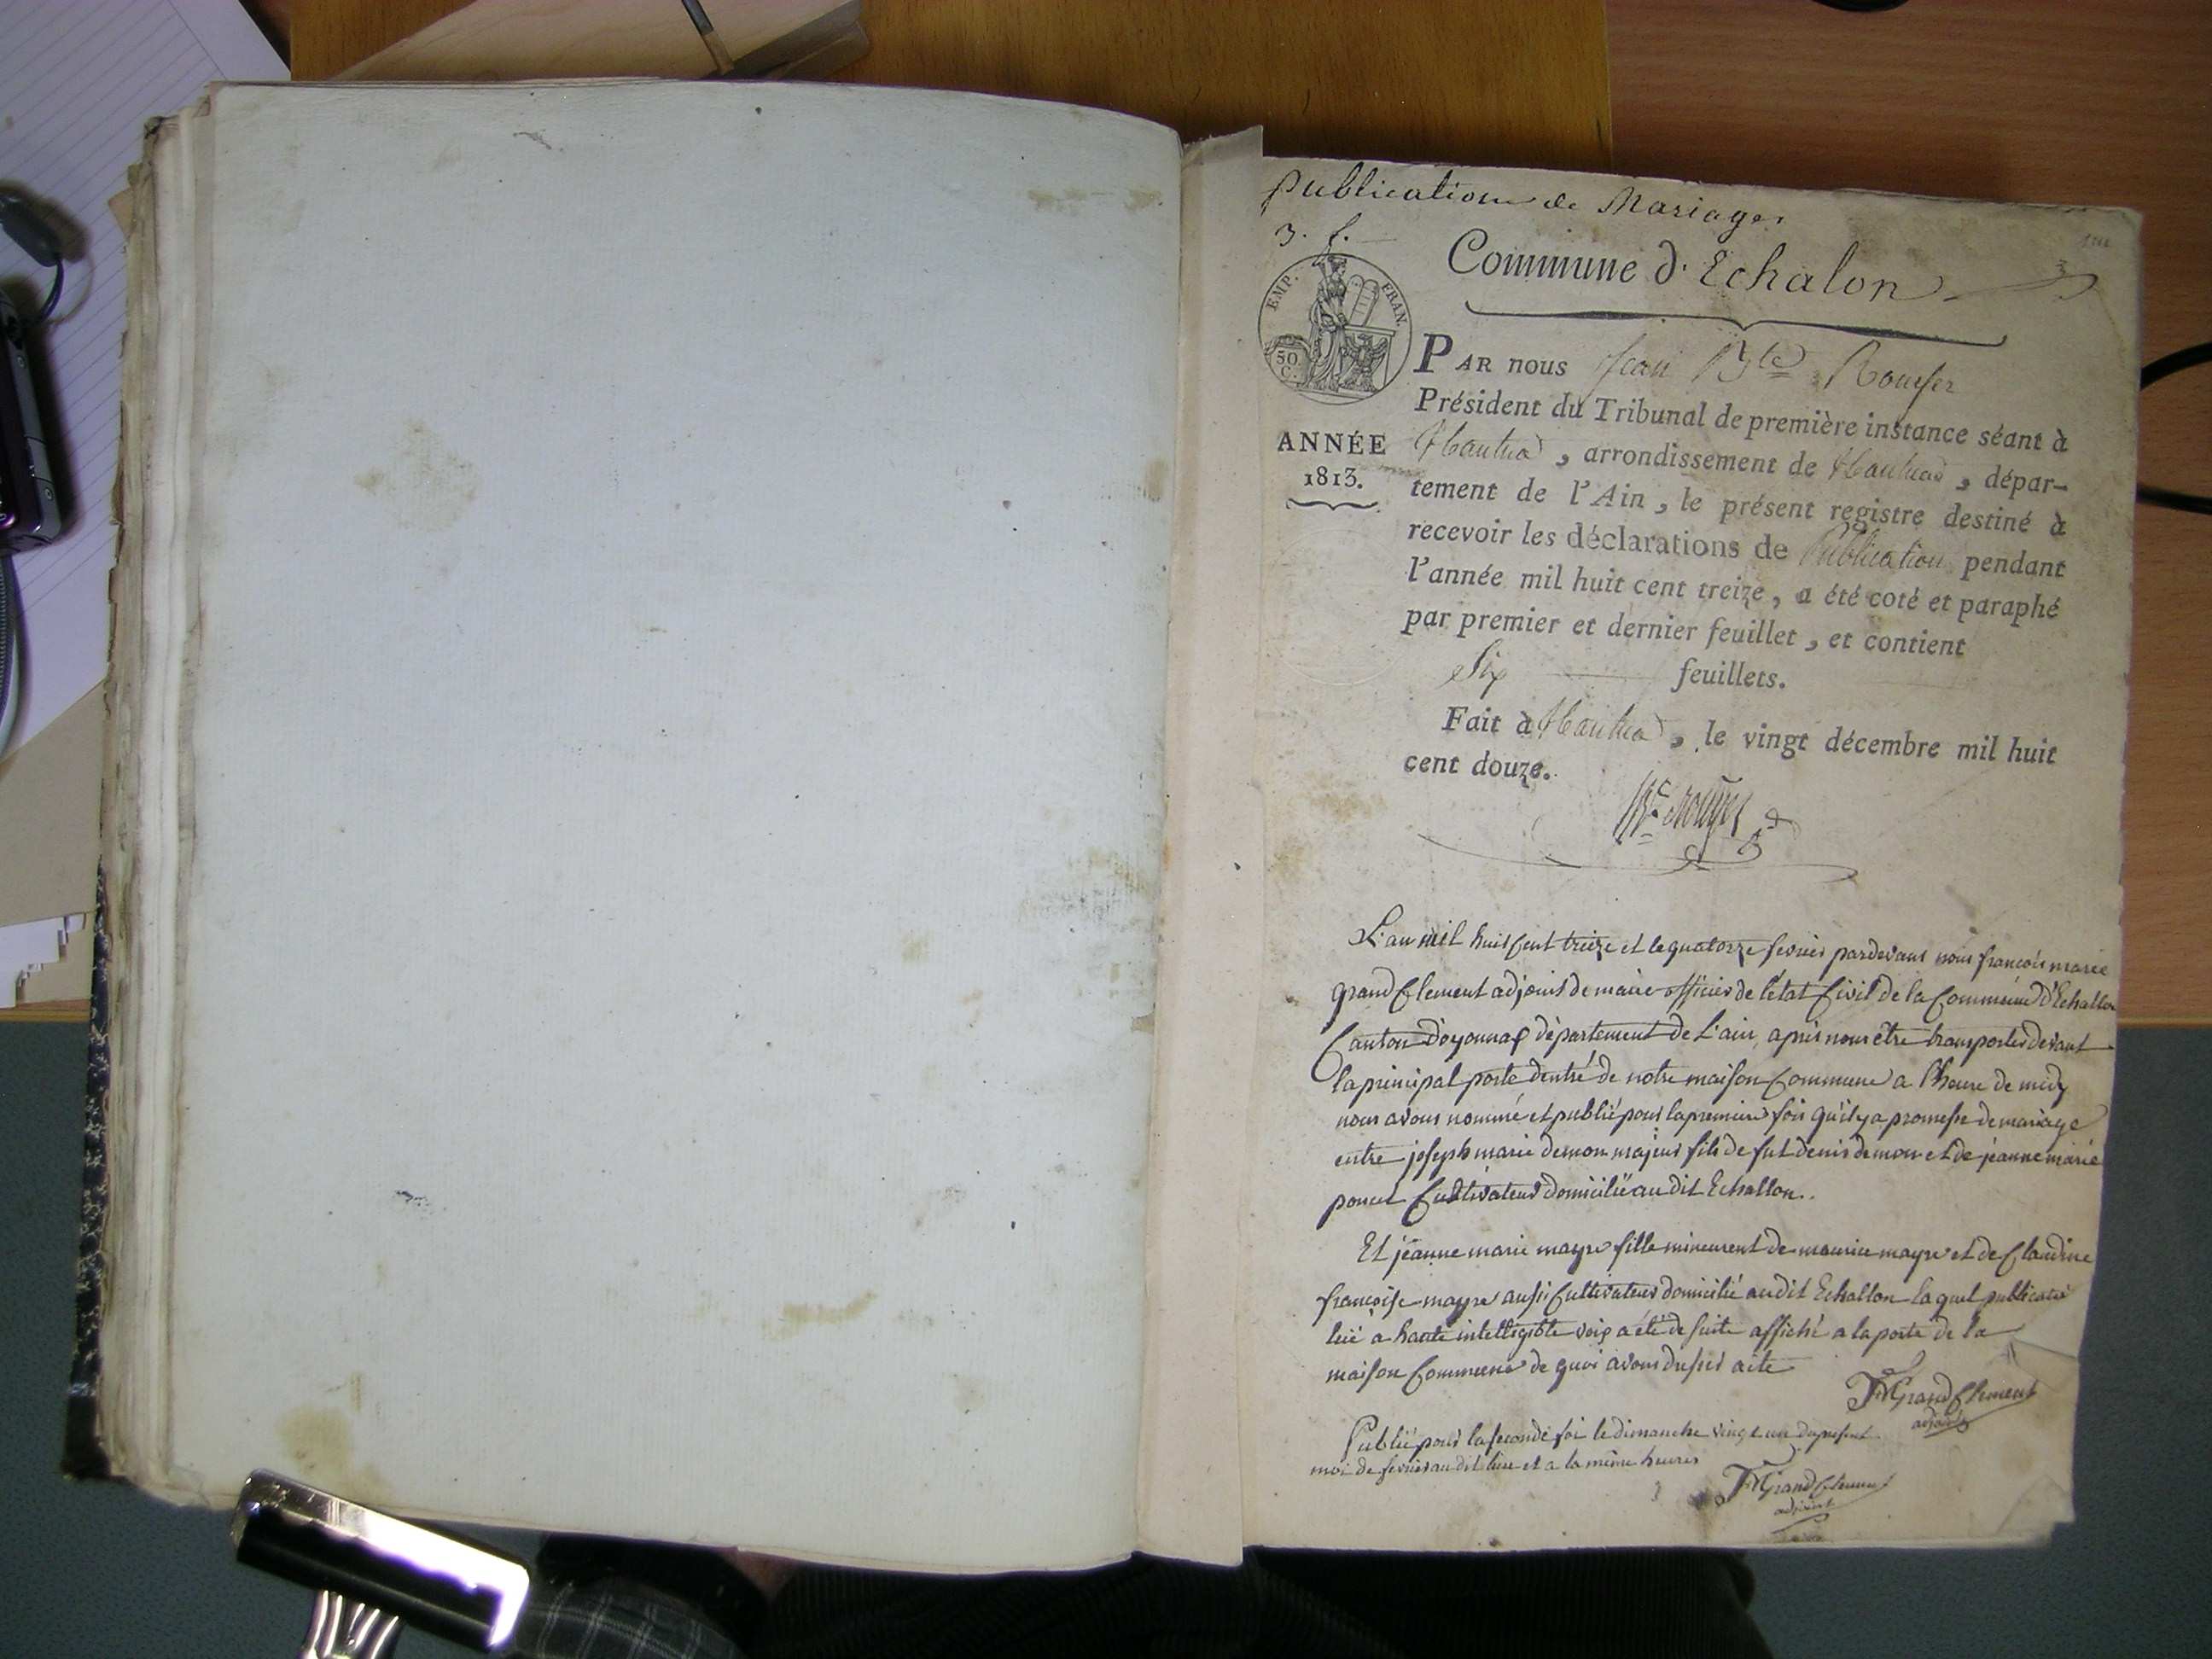 Publication de Mariages
3. f.
Commune d'Echalon
EMP. FRAN.
50
C.
ANNÉE
1813.
PAR nous Jean Bte Rouyer
Président du Tribunal de première instance séant à
Nantua, arrondissement de Nantua, dépar-
tement de l'Ain, le présent registre destiné à
recevoir les déclarations de Publication pendant
l'année mil huit cent treize, a été coté et paraphé
par premier et dernier feuillet, et contient
Six feuillets.
Fait à Nantua, le vingt décembre mil huit
cent douze.
L'an mil huit cent treize et le quatorze fevrier pardevant nous françois marie
grand Clement adjoint de maire officier de l'état Civil de la Commune d'Echallon
Canton d'oyonnax département de L'ain, après nous être transportés devant
la principal porte dentré de notre maison Commune a lheure de midy
nous avons nommé et publié pour la premiere fois qu'il y a promesse de mariage
entre joseph marie demon majeur fils de fut denis demon et de jeanne marie
poncet Cultivateur domicilié au dit Echallon.
Et jeanne marie mayre fille mineure de maurice mayre et de Claudine
françoise mayre aussi Cultivateur domicilié audit Echallon laquel publication
lue a haute intelligible voix a été de suite affiché a la porte de la
maison Commune de quoi avons dressé acte
FMGrandClement
adjoint
Publié pour la seconde foi le dimanche vingt un du present
moi de fevrier au dit lieu et a la même heures
FMGrandClement
adjoint